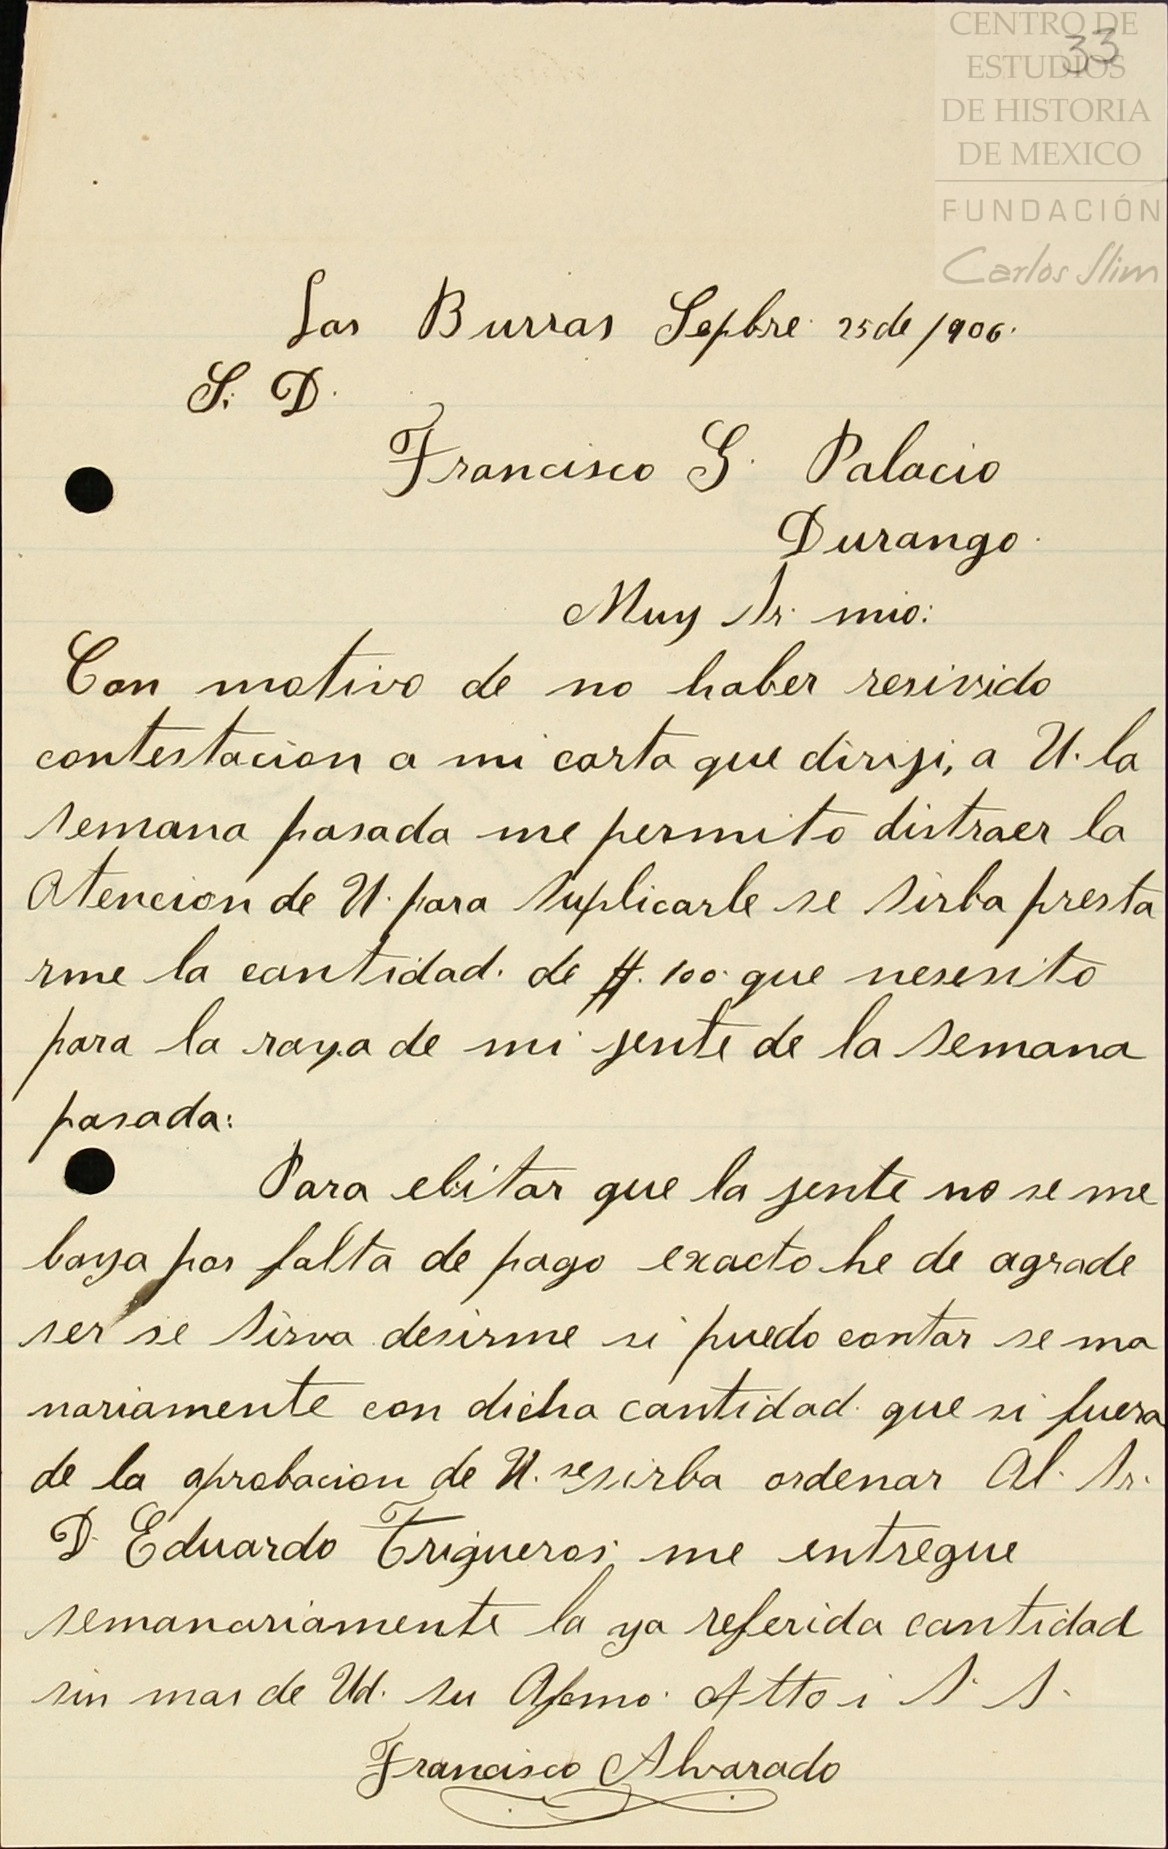 CENTRO DE
ESTUDIOS
DE HISTORIA
DE MEXICO
FUNDACIÓN
Carlos Slim
33
Las Burras Sepbre 25 de 1906.
S. D.
Francisco G. Palacio
Durango.
Muy Sr. mio:
Con motivo de no haber resivido
contestacion a mi carta que diriji, a U. la
semana pasada me permito distraer la
Atencion de U. para suplicarle se sirba presta
rme la cantidad. de $. 100. que nesesito
para la raya de mi jente de la semana
pasada:
Para ebitar que la jente no se me
baya por falta de pago exacto he de agrade
ser se sirva desirme si puedo contar se ma
nariamente con dicha cantidad. que si fuera
de la aprobacion de U. se sirba ordenar Al. Sr.
D. Eduardo Trigueros, me entregue
semanariamente la ya referida cantidad
sin mas de Ud. su Afmo. Atto i S. S.
Francisco Alvarado